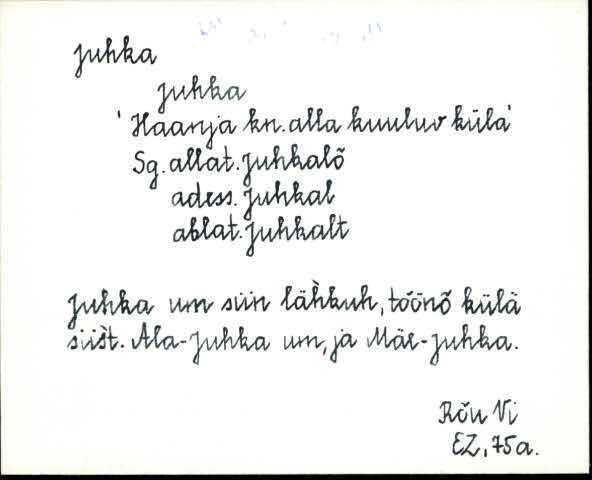 Juhka
Juhka
'Haanja kn. alla kuuluv külä'
Sg. allat. Juhkalõ
adess. Juhkal
ablat. Juhkalt
Juhka um siin lähkuh, tõõnõ külä
siist. Ala-Juhka um, ja Mäe-Juhka.
Rõu Vi
EZ, 75a.